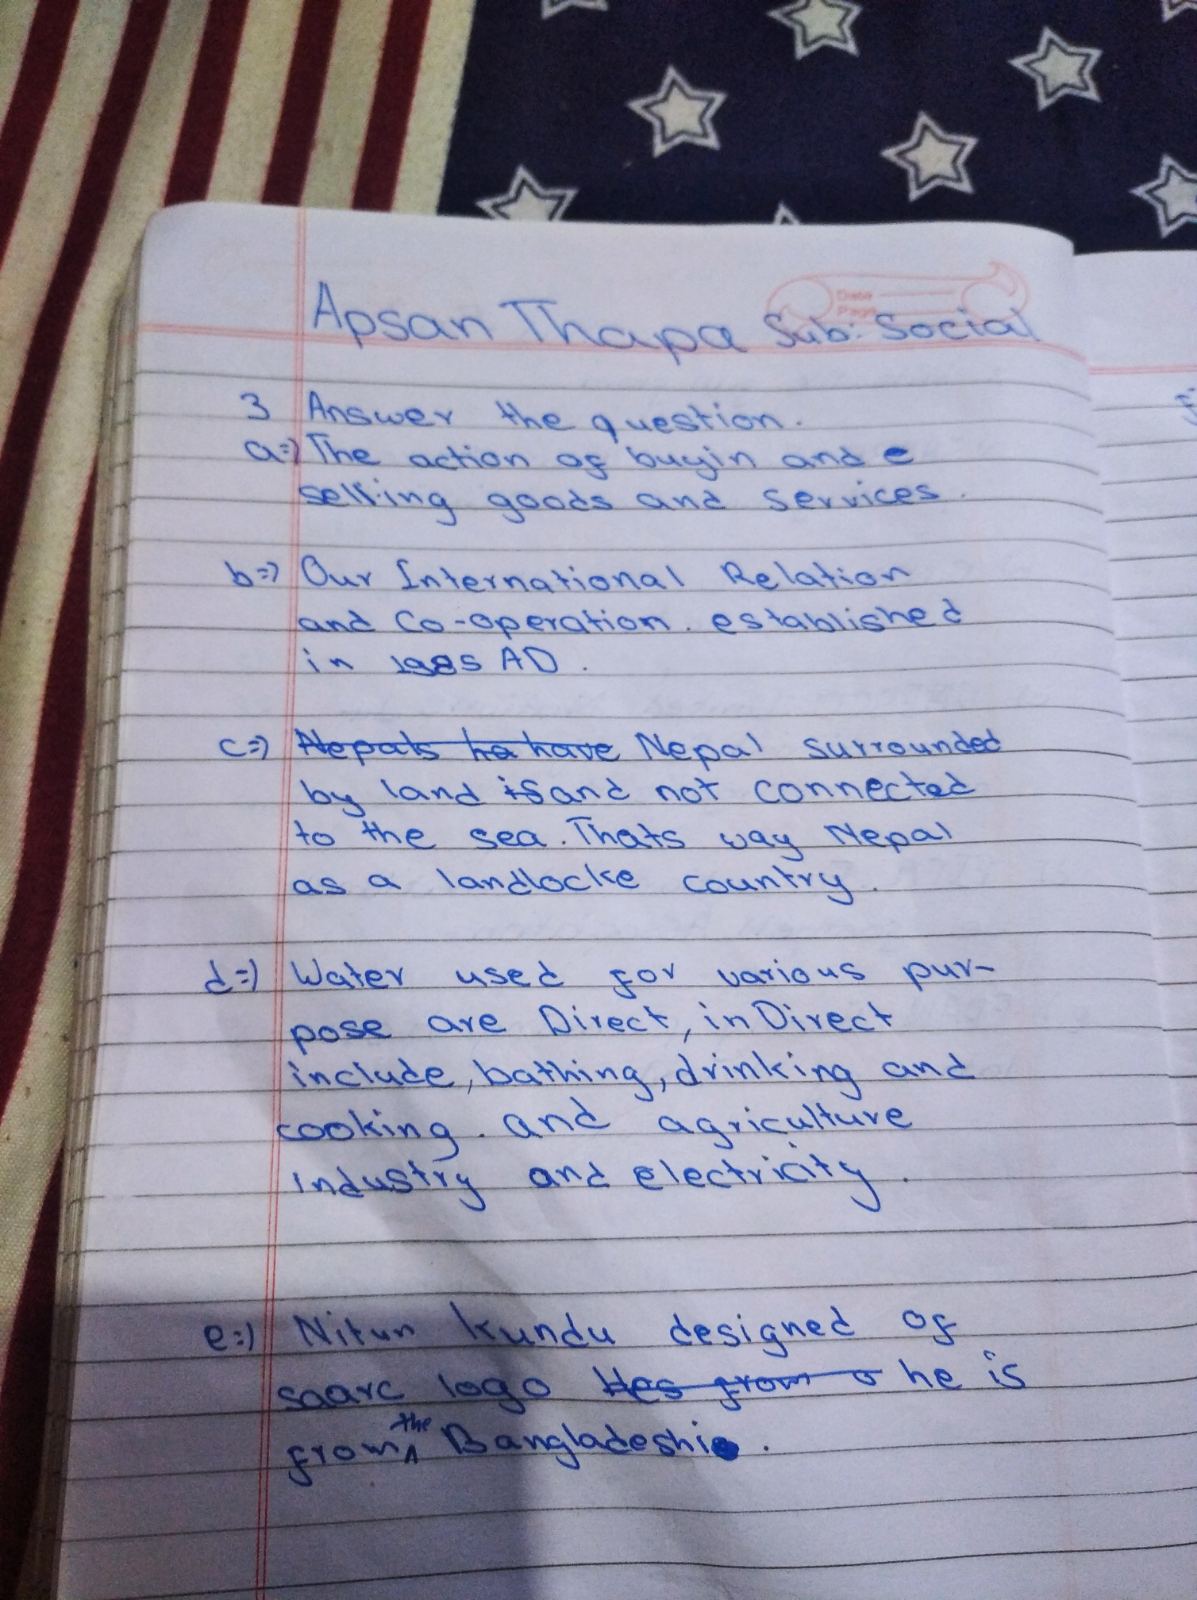 Apsan Thapa Sub: Social
Date
Page
3 Answer the question.
a⇒ The action of buyin and
selling goods and services.
b⇒ Our International Relation
and Co-operation. established
in 1985 AD.
c⇒ Nepals ha have Nepal surrounded
by land is and not connected
to the sea. Thats way Nepal
as a landlocke country.
d⇒ Water used for various pur-
pose are Direct, inDirect
include, bathing, drinking and
cooking. and agriculture
industry and electricity.
e⇒ Nitun kundu designed of
saarc logo Hes from he is
from the Bangladeshi.